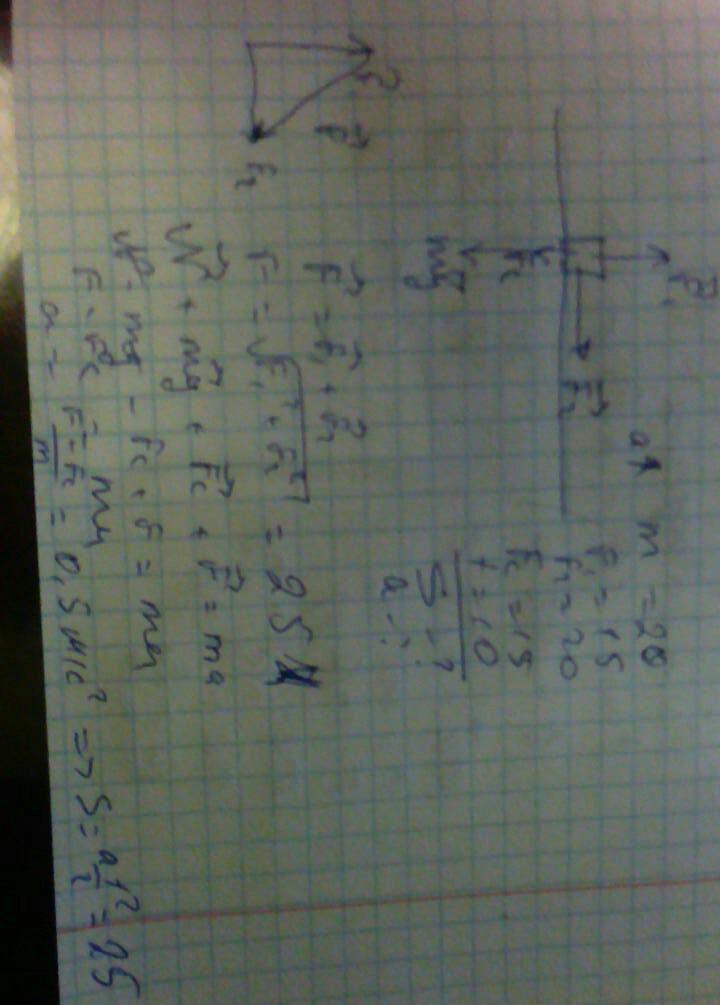 m = 20
F₁ = 15
F₂ = 20
Fc = 15
t = 10
S - ?
a - ?
F₂
mg
F₂
F⃗ = F⃗₁ + F⃗₂
F = √F₁² + F₂² = 25 Н
N⃗ + mg⃗ + F⃗c + F⃗ = ma
N - mg - Fc + F = ma
F - Fc = ma
a = F - Fc / m = 0,5 м/с² => S = at²/2 = 25